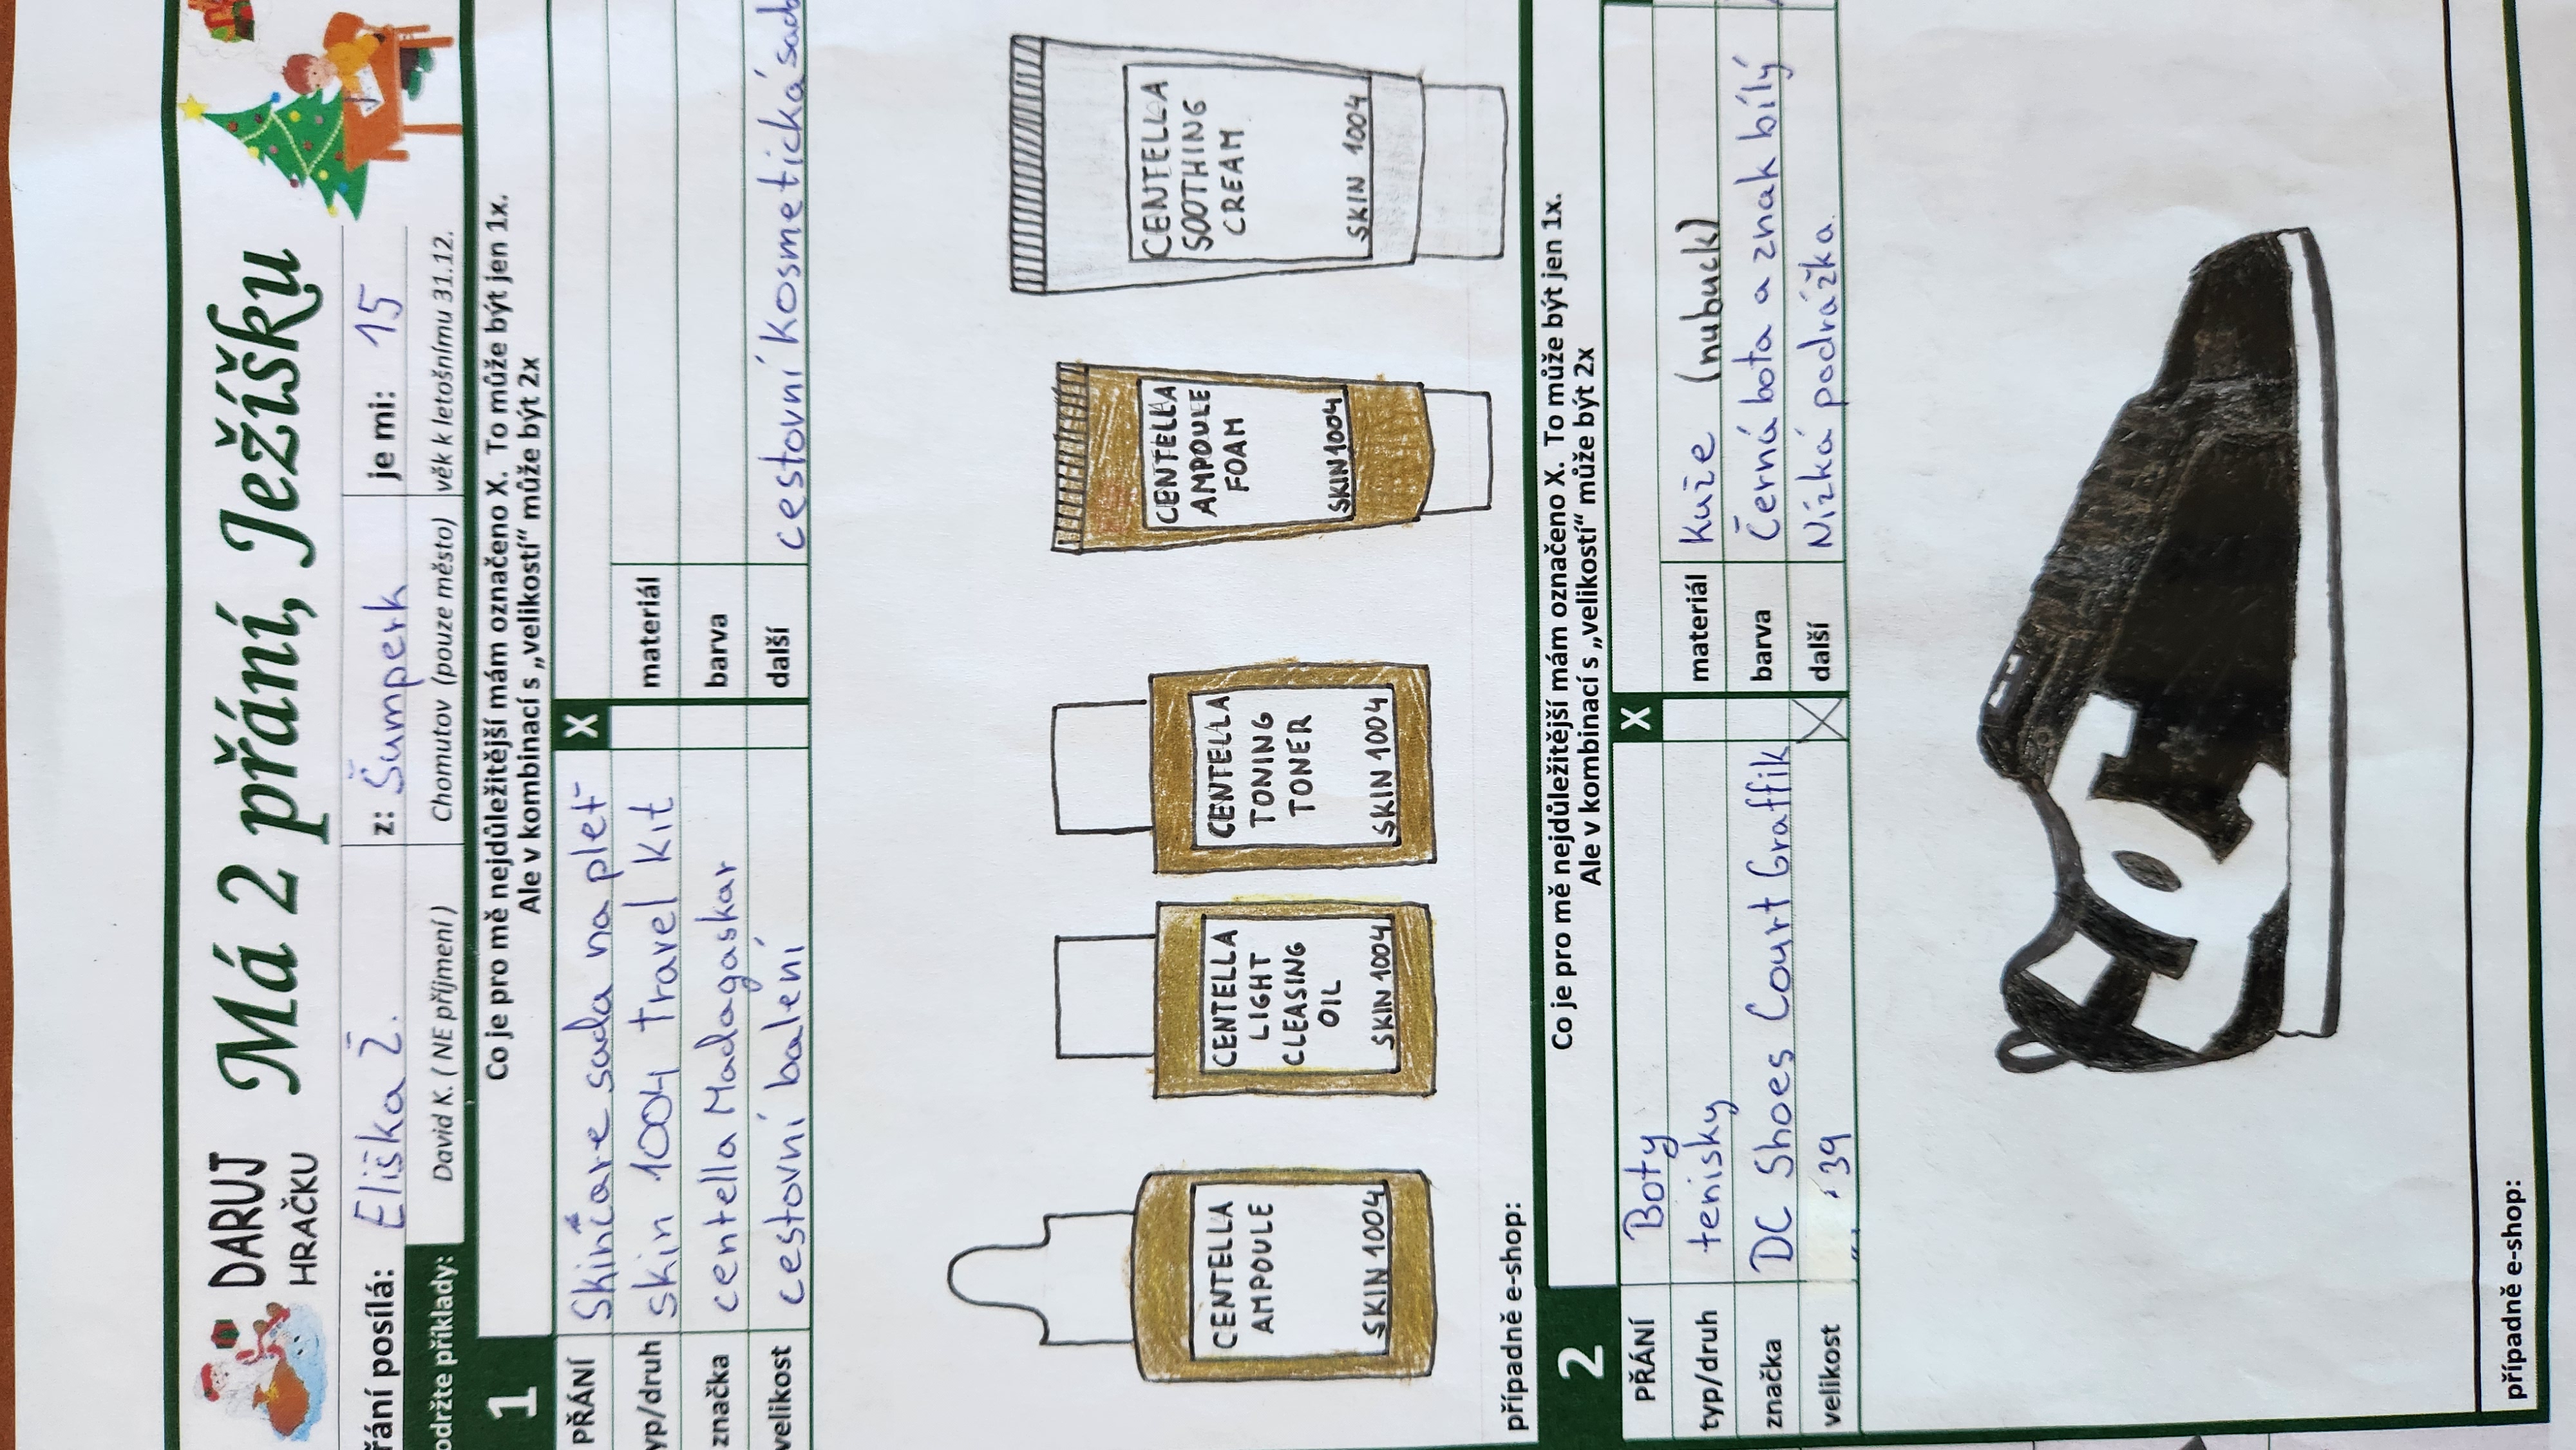 DARUJ
HRAČKU
Má 2 přání, Ježíšku
řání posílá: Eliška Ž. z: Šumperk je mi: 15
održte příklady: David K. ( NE příjmení ) Chomutov (pouze město) věk k letošnímu 31.12.
1 Co je pro mě nejdůležitější mám označeno X. To může být jen 1x.
Ale v kombinací s „velikostí“ může být 2x
PŘÁNÍ Skincare sada na pleť X
yp/druh skin 1004 travel kit materiál
značka centella Madagaskar barva
velikost cestovní balení další cestovní kosmetická sad
CENTELLA
AMPOULE
SKIN 1004
CENTELLA
LIGHT
CLEASING
OIL
SKIN 1004
CENTELLA
TONING
TONER
SKIN 1004
CENTELLA
AMPOULE
FOAM
SKIN 1004
CENTELLA
SOOTHING
CREAM
SKIN 1004
případně e-shop:
2 Co je pro mě nejdůležitější mám označeno X. To může být jen 1x.
Ale v kombinací s „velikostí“ může být 2x
PŘÁNÍ Boty X
typ/druh tenisky materiál kůže (nubuck)
značka DC Shoes Court Graffik barva Černá bota a znak bílý
velikost 39 X další Nízká podrážka.
případně e-shop: